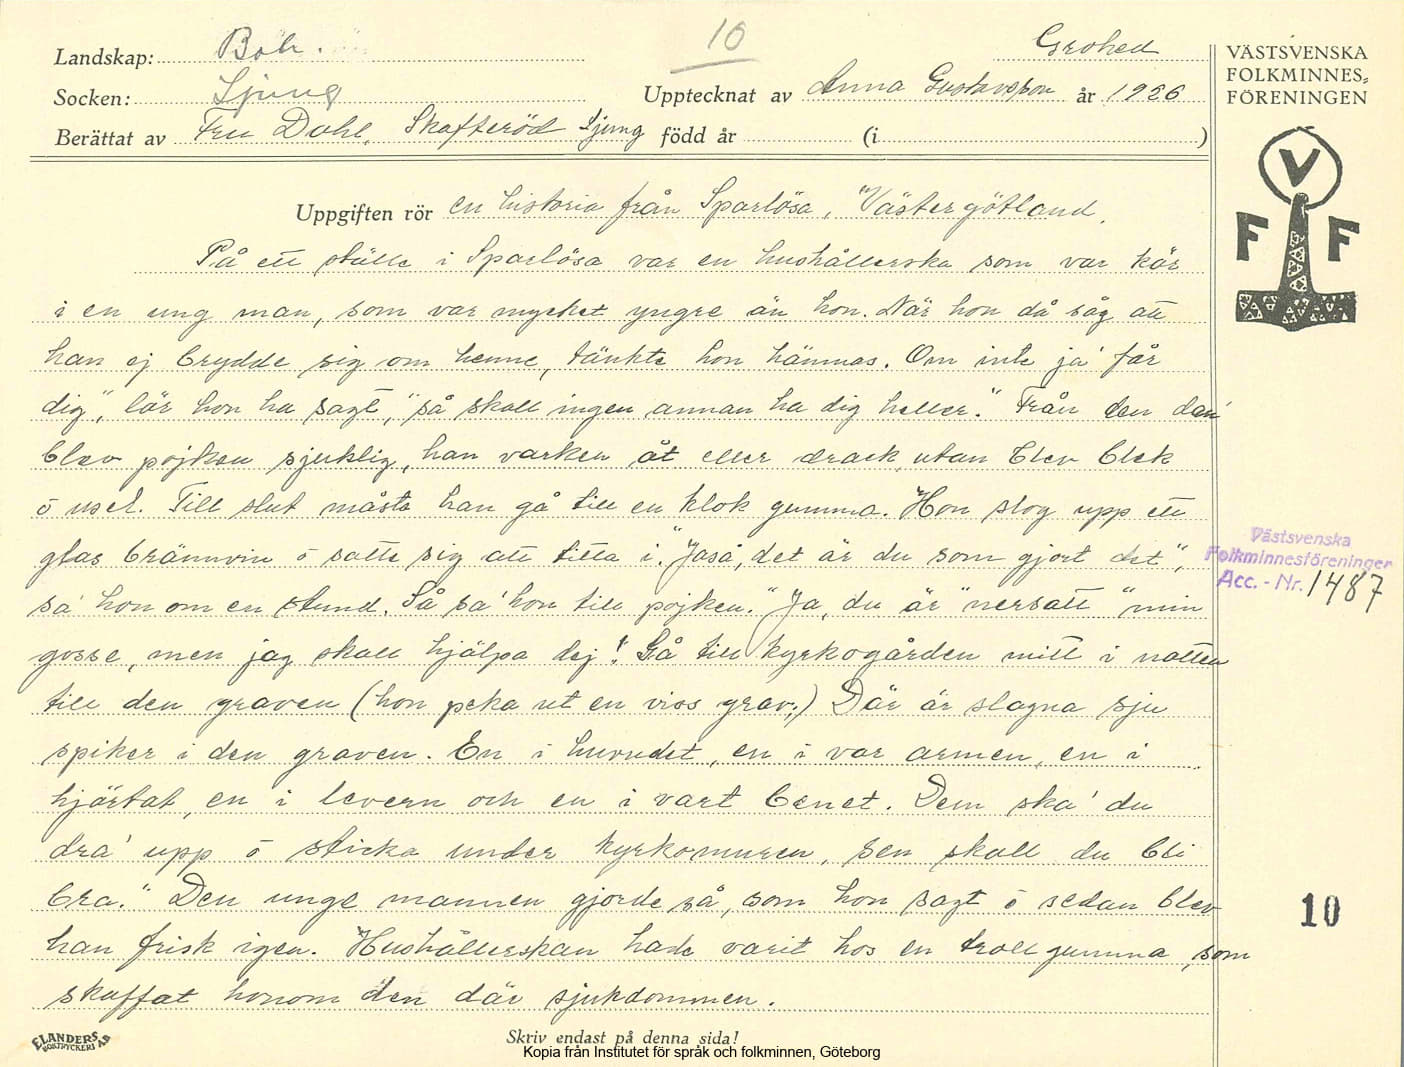 10
Grohed
Landskap: Boh.
Socken: Ljung
Upptecknat av Anna Gustavsson år 1926
Berättat av Fru Dahl, Skafteröd Ljung född år (i )
VÄSTSVENSKA
FOLKMINNES-
FÖRENINGEN
V
F F
Uppgiften rör en historia från Sparlösa, Västergötland.
På ett ställe i Sparlösa var en hushållerska som var kär
i en ung man, som var mycket yngre än hon. När hon då såg att
han ej brydde sig om henne, tänkte hon hämnas. Om inte ja' får
dig", lär hon ha sagt, "så skall ingen annan ha dig heller." Från den dan
blev pojken sjuklig, han varken åt eller drack, utan blev blek
ō usel. Till slut måste han gå till en klok gumma. Hon slog upp ett
glas brännvin ō satte sig att titta i. "Jaså, det är du som gjort det",
sa' hon om en stund. Så sa' hon till pojken. "Ja, du är "nersatt" min
gosse, men jag skall hjälpa dej! Gå till kyrkogården mitt i natten
till den graven (hon peka ut en viss grav.) Där är slagna sju
spiker i den graven. En i huvudet, en i var armen, en i
hjärtat, en i levern och en i vart benet. Dem ska' du
dra' upp ō sticka under kyrkomuren, sen skall du bli
bra." Den unge mannen gjorde så, som hon sagt ō sedan blev
han frisk igen. Hushållerskan hade varit hos en trollgumma, som
skaffat honom den där sjukdommen.
Västsvenska
Folkminnesföreningen
Acc. - Nr. 1487
10
ELANDERS
BOKTRYCKERI AB
Skriv endast på denna sida!
Kopia från Institutet för språk och folkminnen, Göteborg